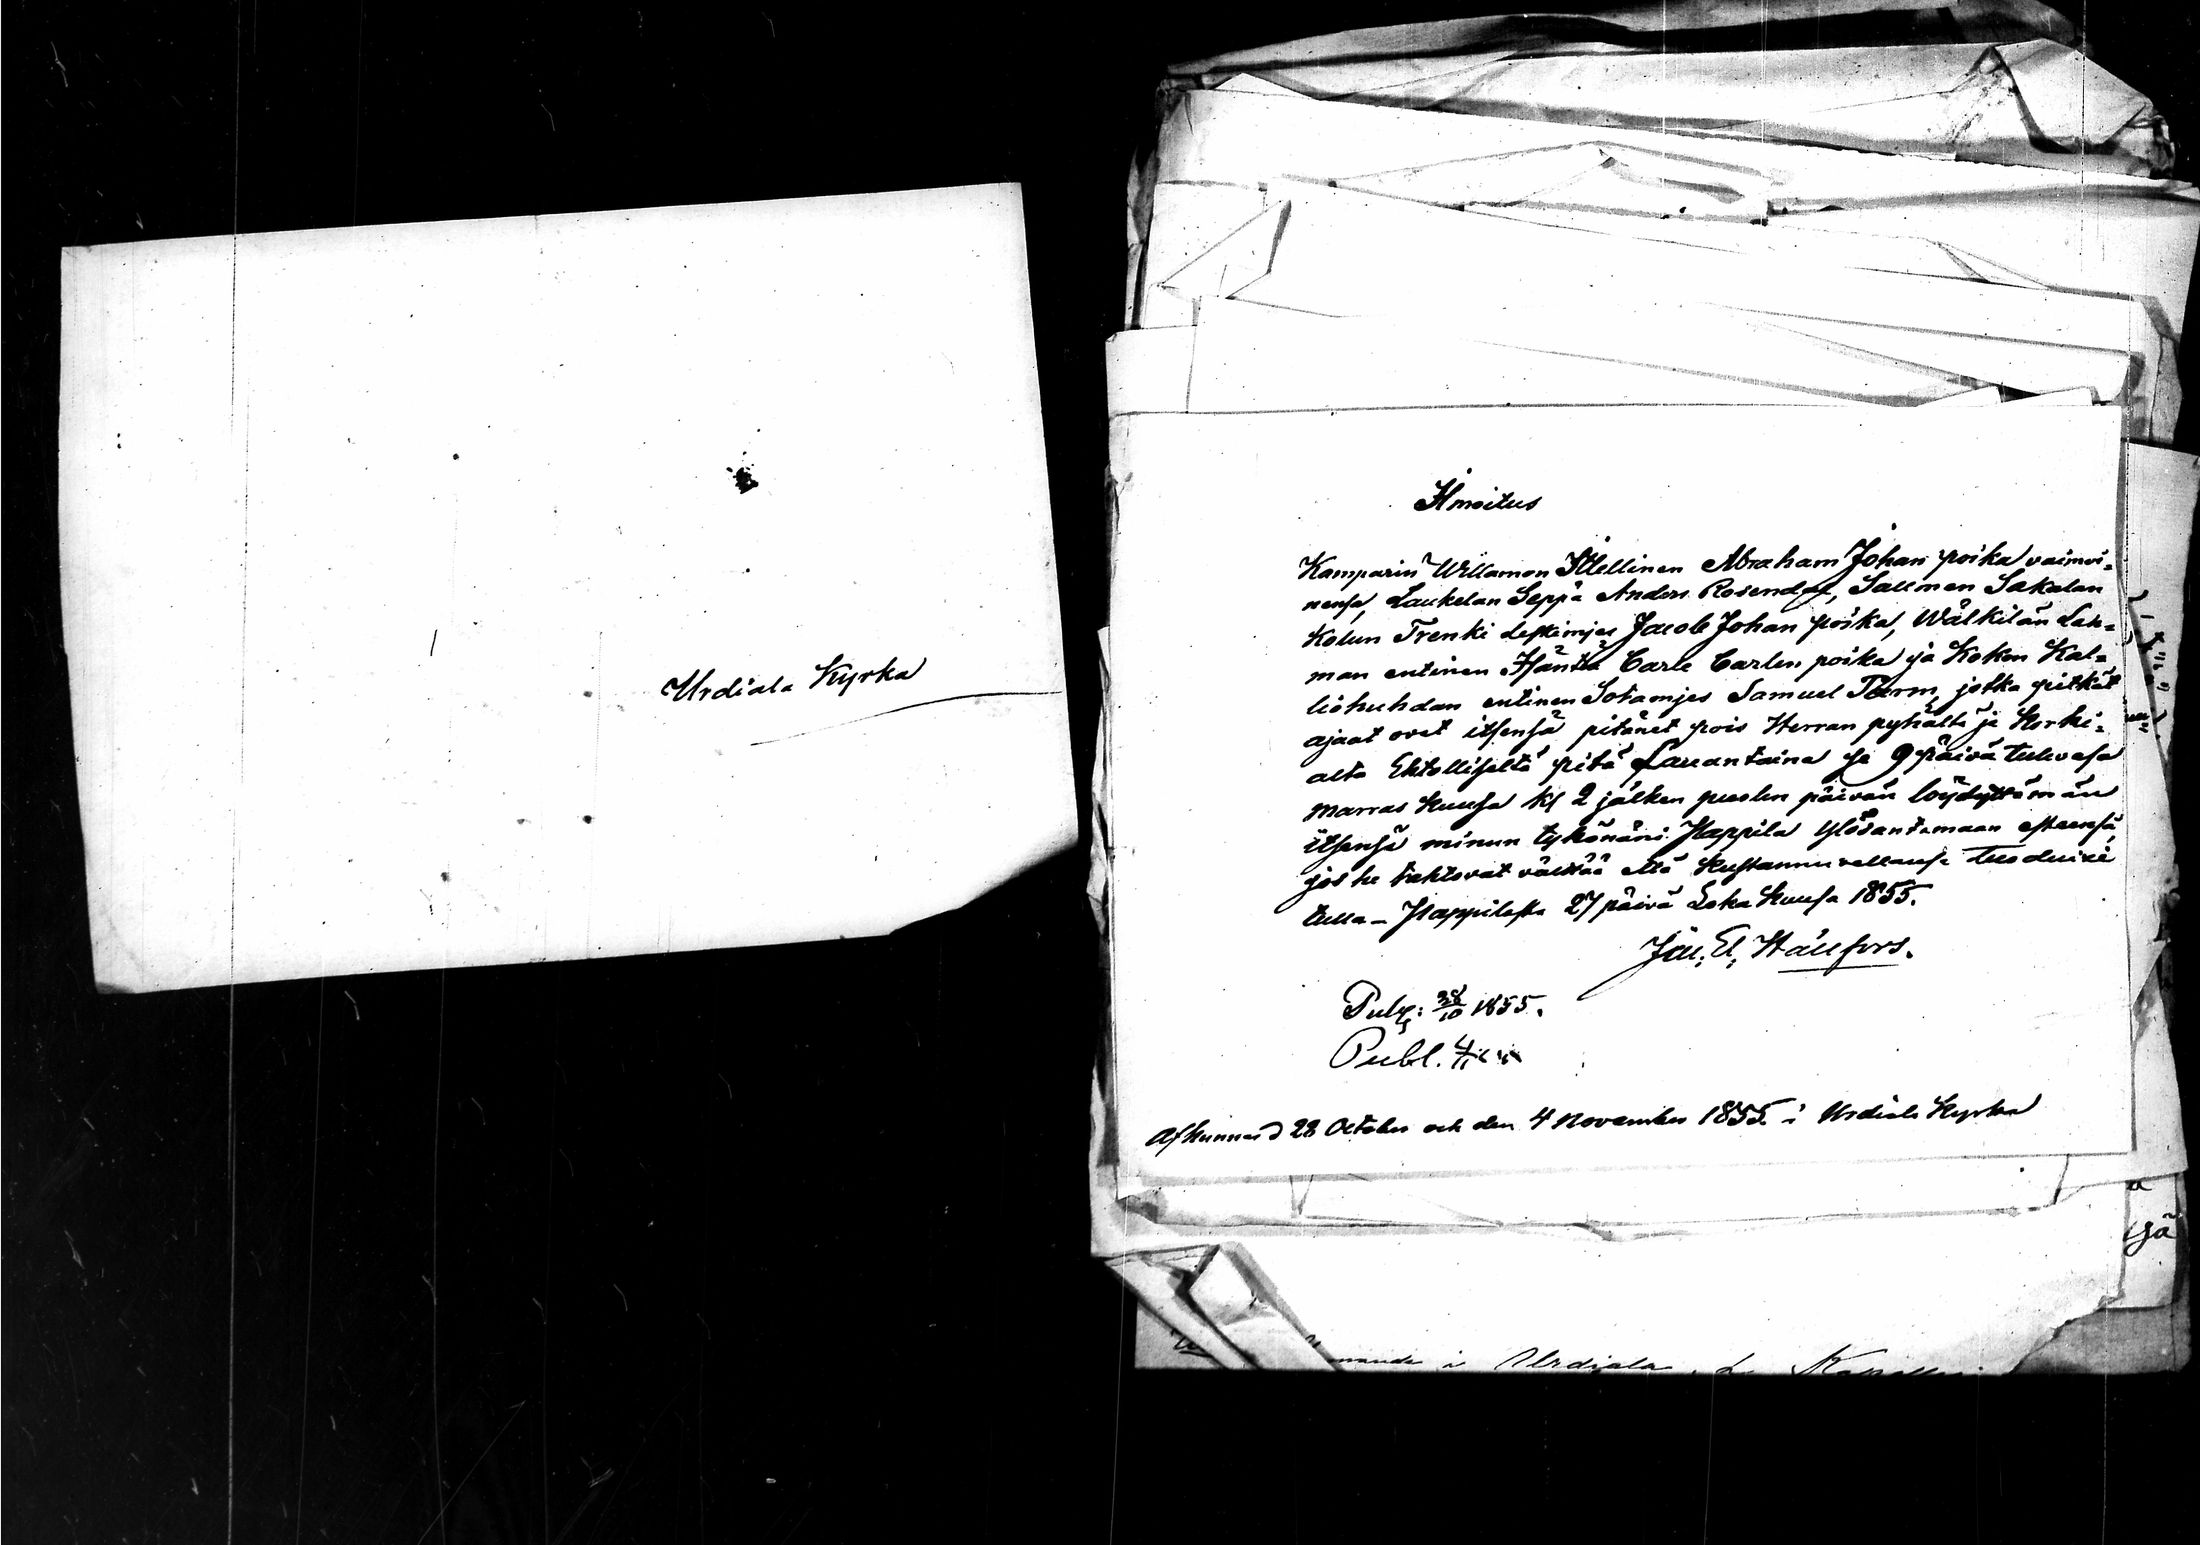 Urdiala Kyrka
Ilmoitus
Kamparin Willamon Itellinen Abraham Johan poika vaimoi-
nensa, Laukelan Seppä Anders Rosendal, Salmen Sakalan
Kolun Trenki Leskimjes Jacob Johan poika, Wälkilän Lah-
man entinen Isäntä Carle Carlen poika ja Koken Kal-
liohuhdan entinen Sotamjes Samuel Term, jotka pitkät
ajaat ovat itsensä pitänet pois Herran pyhältä ja korki-
alta Ehtolliselta pitä Lauantaina se 9 päivä tulevasa
Marras kuusa kl 2 jälken puolen päivän löydyttämän
itsensä minun tykönäni Happila Ylösantamaan esteensä,
jos he tahtovat välttää että kustannuxellansa tuoduixi
tulla – Happilasta 27 päivä Loka kuusa 1855.
Jac. El. Hällfors.
Pulp: 28/10 1855.
Publ. 4/11
Afkunnad 28 October och den 4 November 1855. i Urdiala Kyrka
mande i Urdiala
sä